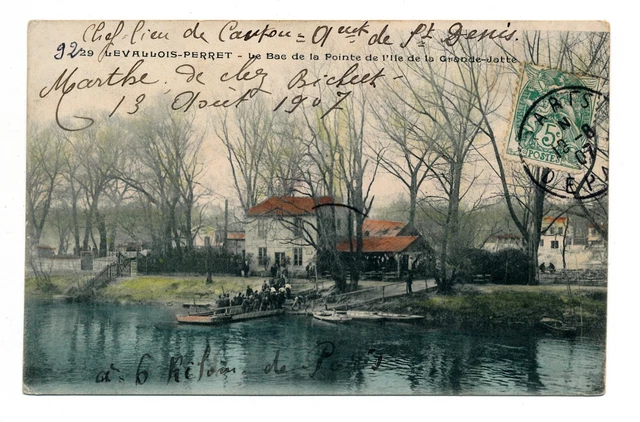 Chef-lieu de Canton = Arr.t de St Denis.
92 29 LEVALLOIS-PERRET - Le Bac de la Pointe de l'Ile de la Grande-Jatte
Marthe de chez Bichet -
13 Août 1907
PARIS
5c
POSTES
DÉPART
à 6 Kilom. de Paris